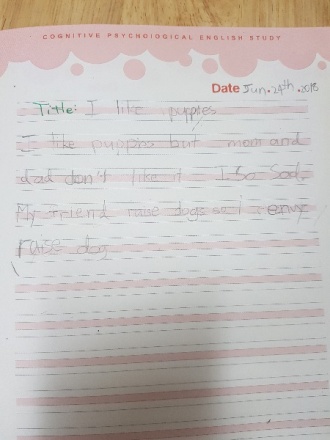 COGNITIVE PSYCHOLOGICAL ENGLISH STUDY
Date Jun. 29th. 2018
Title: I like puppies
I like puppies but mom and
dad don't like it I So Sad.
My friend raise dogs so I envy
raise dog